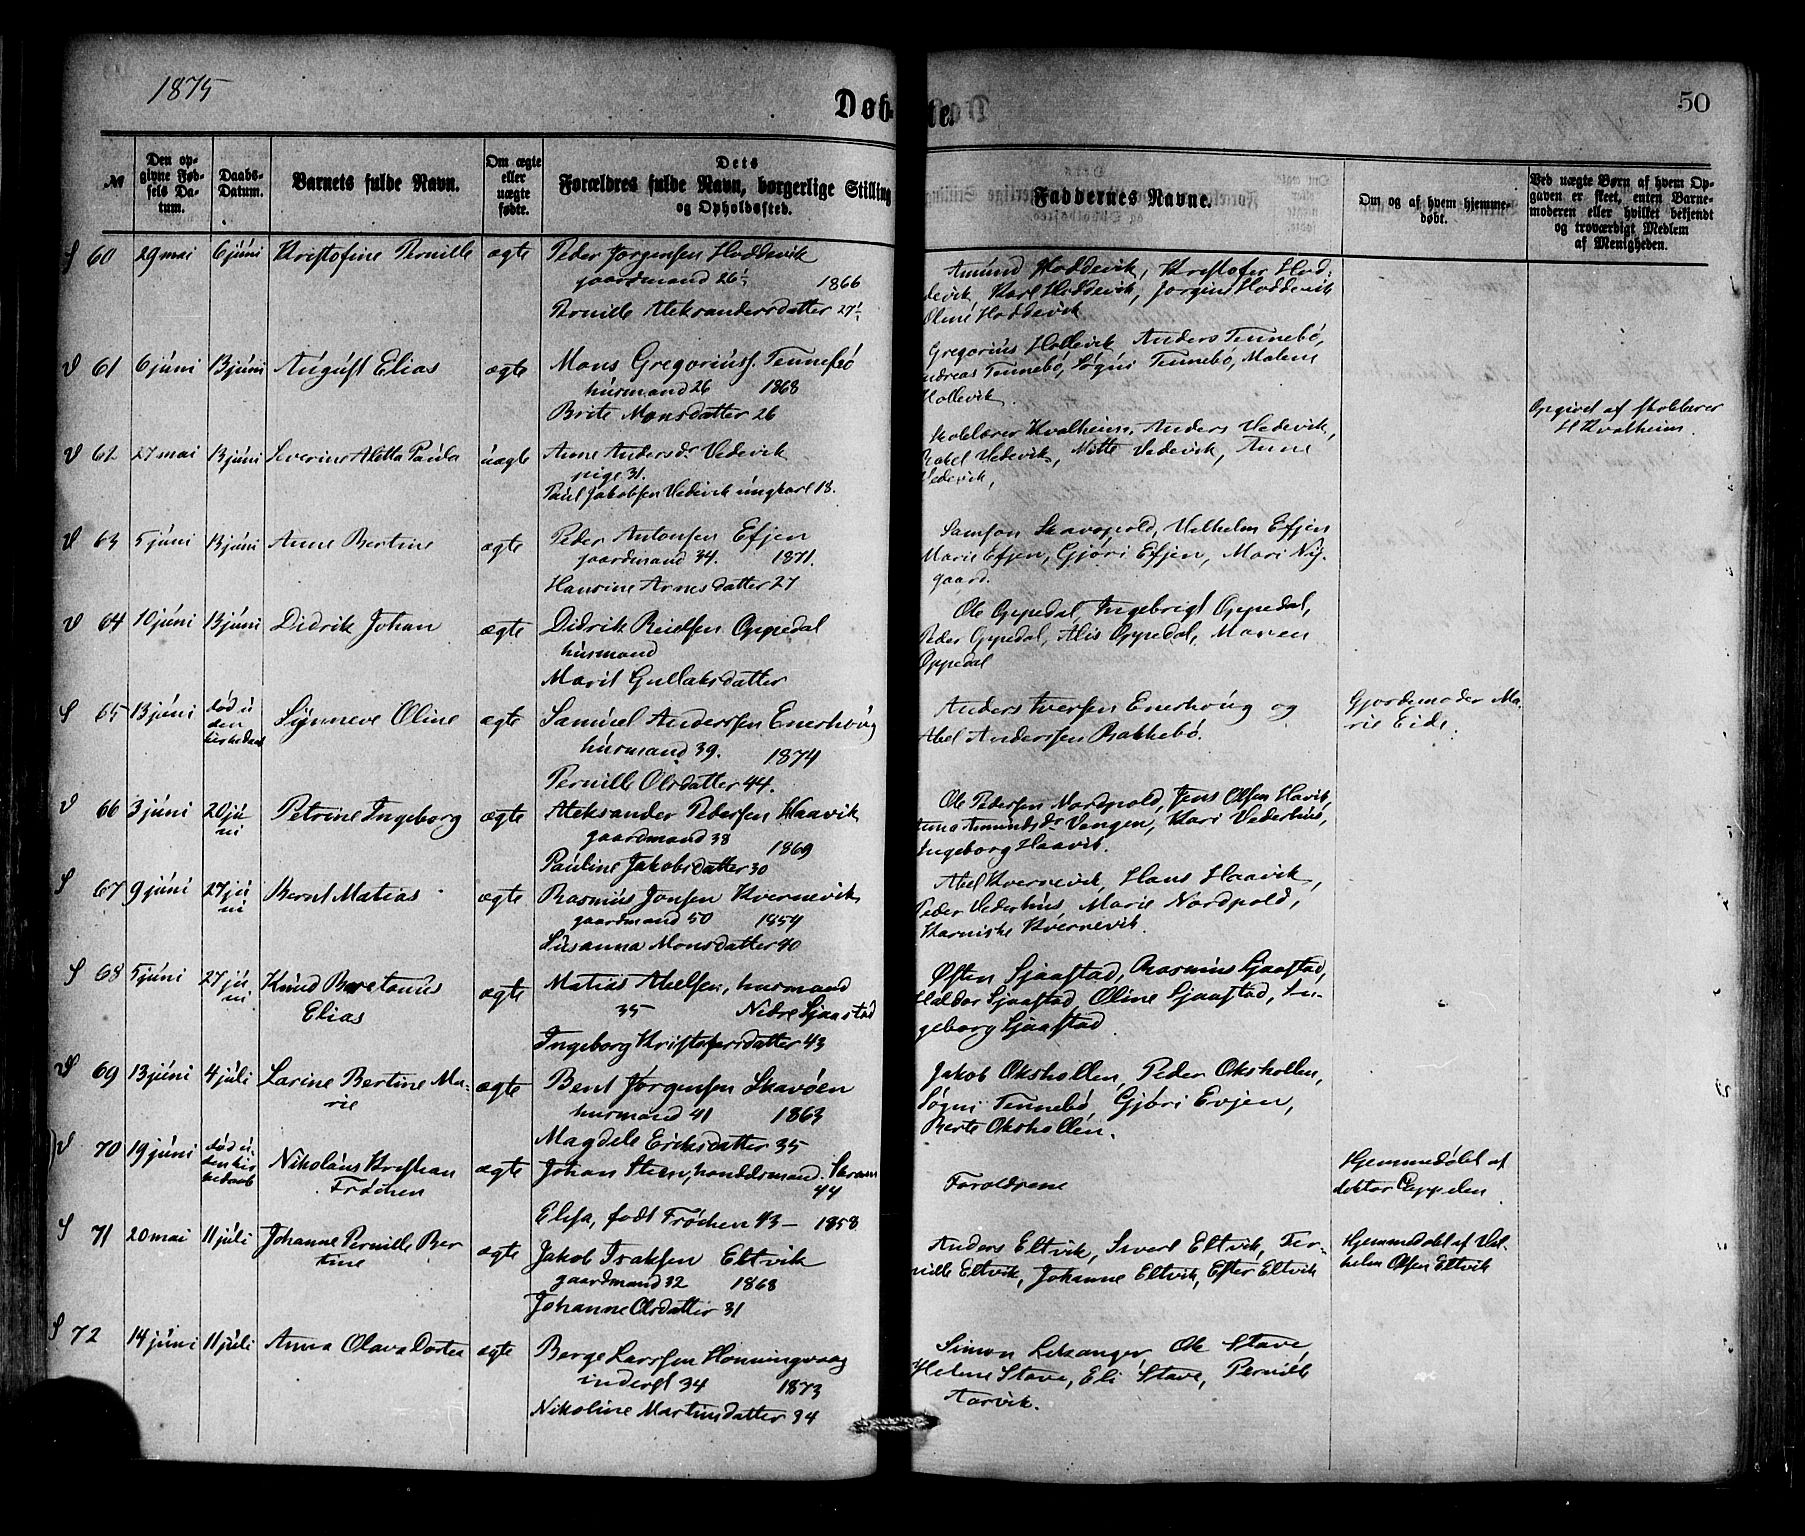 1875
Døb-
te.
50
№
Den op-
givne Fød-
sels Da-
tum.
Daabs-
Datum.
Barnets fulde Navn.
Om ægte
eller
uægte
fødte.
Dets
Forældres fulde Navn, borgerlige Stilling
og Opholdssted.
Faddernes Navne.
Om og af hvem hjemme-
døbt.
Ved uægte Børn af hvem Op-
gaven er skeet, enten Barne-
moderen eller hvilket bekjendt
og troværdigt Medlem
af Menigheden.
S 60 29 mai 6 júni Kristofine Pernille ægte Peder Jørgensen Hoddevik
gaardmand 26 1866
Pernille Aleksandersdatter 27
Amúnd Hoddevik, Kristofer Hod-
devik, Karl Hoddevik, Jørgine Hoddevik
Oline Hoddevik
V 61 6 júni 13 júni Aúgúst Elias ægte Mons Gregoriúss. Tennebø
húsmand 26 1868
Brite Monsdatter 26
Gregorius Hollevik Anders Tennebø,
Andreas Tennebø, Søgni Tennebø, Malene
Hollevik.
V 62 27 mai 13 júni Severine Aletta Paúla úægte Anne Andersdr Vedevik
pige 31.
Paúl Jakobsen Vedevik úngkarl 18.
Skolelærer Kvalheim, Anders Vedevik,
Rakel Vedevik, Mette Vedevik, Anne
Vedevik,
Opgivet af skolelærer
H Kvalheim.
V 63 5 júni 13 júni Anne Bertine ægte Peder Antonsen Efjen
gaardmand 34. 1871.
Hansine Arnesdatter 27
Samson Skavøpold, Vilhelm Efjen
Marie Efjen, Gjøri Efjen, Mari Ny-
gaard.
V 64 10 júni 13 júni Didrik Johan ægte Didrik Reielsen Oppedal
húsmand
Marit Gullaksdatter
Ole Oppedal Ingebrigt Oppedal,
Peder Oppedal, Alis Oppedal, Maren
Oppedal
S 65 13 júni død ú
den
kirkedaab
Synneve Oline ægte Samúel Anderssen Enerhoúg
húsmand 39. 1874
Pernille Olsdatter 44.
Anders Iversen Enerhoúg og
Abel Anderssen Rakkebø.
Gjordemoder Ma-
rie Eide.
V 66 3 júni 20 jú
ni
Petrine Ingeborg ægte Aleksander Pedersen Haavik
gaardmand 38 1869
Paúline Jakobsdatter 30
Ole Pedersen Nordpold, Jens Olsen Havik,
Anna Amundsdr Vengen, Kari Vederhús,
Ingeborg Haavik.
S 67 9 júni 27 jú
ni
Bernt Matias ægte Rasmús Jonsen Kvernevik
gaardmand 50 1854
Súsanna Monsdatter 40
Abel Kvernevik, Hans Haavik,
Peder Vederhús Marie Nordpold,
Karniske Kvernevik.
S 68 5 júni 27 jú
ni
Knúd Bretanús
Elias
ægte Matias Abelsen, husmand
35 Nedre Sjaastad
Ingeborg Kristofersdatter 43
Østen Sjaastad, Rasmús Sjaastad,
Haldor Sjaastad, Oline Sjaastad, In-
geborg Sjaastad
V 69 13 júni 4 júli Larine Bertine Ma-
rie
ægte Bent Jørgensen Skavøen
húsmand 41 1863
Magdele Eriksdatter 35
Jakob Oksholten, Peder Oksholten,
Søgni Tennebø, Gjøri Evjen,
Berte Oksholten.
V 70 19 júni død ú-
den kir
kedaab
Nikolaús Kristian
Frøchen
ægte Johan Steen, handelsmand
44
Elisa, født Frøchen 43 — 1858
Foreldrene
Hjemmedøbt af
doktor Cappelen
S 71 20 mai 11 júli Johanne Pernille Ber
tine
ægte Jakob Isaksen Eltvik
gaardmand 32 1868
Johanne Olsdatter 31
Anders Eltvik, Sivert Eltvik, Per-
nille Eltvik, Johanne Eltvik, Ester Eltvik
Hjemmedøbt af Vil-
helm Olsen Eltvik
S 72 14 júni 11 júli Anna Olava Dortea ægte Børge Larssen Honningvaag
inderst 34 1873
Nikoline Martinsdatter 34
Simon Leknanger Ole Stave,
Helene Stave, Eli Stave, Pernille
Aarvik.